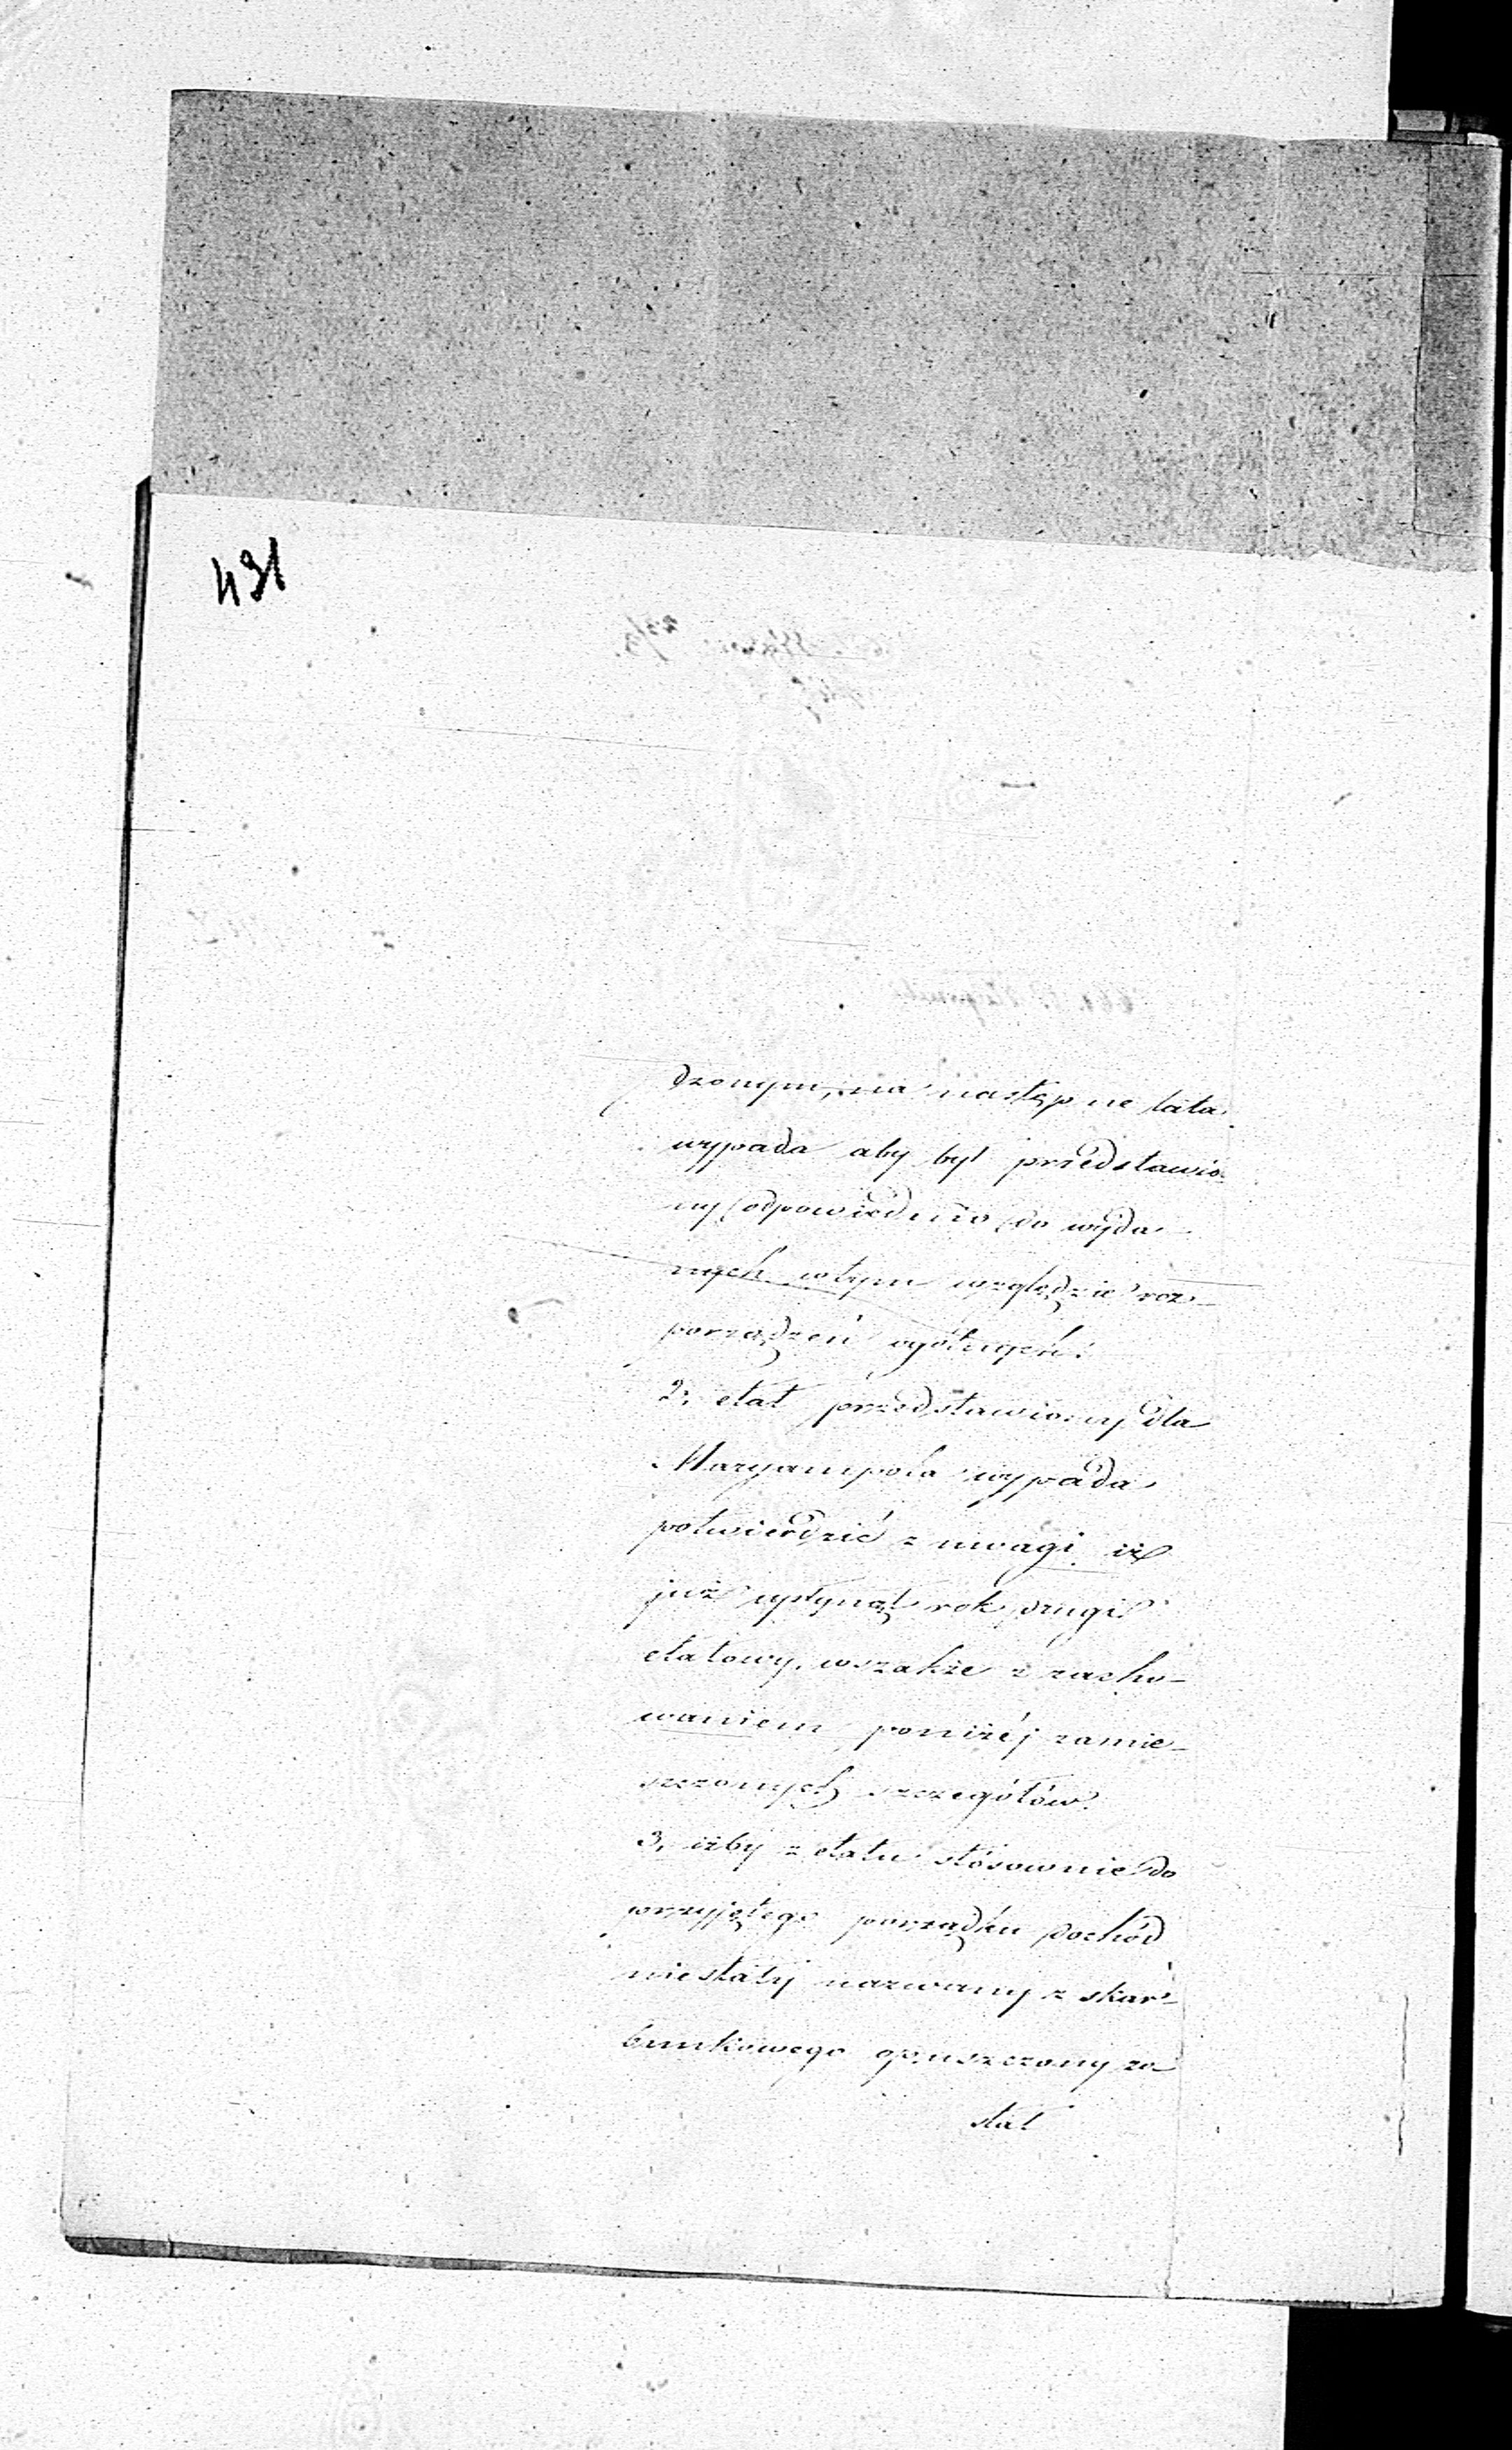 431
dzonym, na następne lata
wypada aby był przedstawio-
ny odpowiednio do wyda-
nych wtym względzie roz-
porządzeń ogólnych.
2, etat przedstawiony dla
Maryampola wypada
potwierdzić z uwagi iż
już upłynął rok drugi
etatowy, wszakże z zacho-
waniem poniżéj zamie-
szczonych szczegółów.
3, iżby z etatu stósownie do
przyjętego porządku dochód
niestały nazwany z skar-
bunkowego opuszczony zo
stał